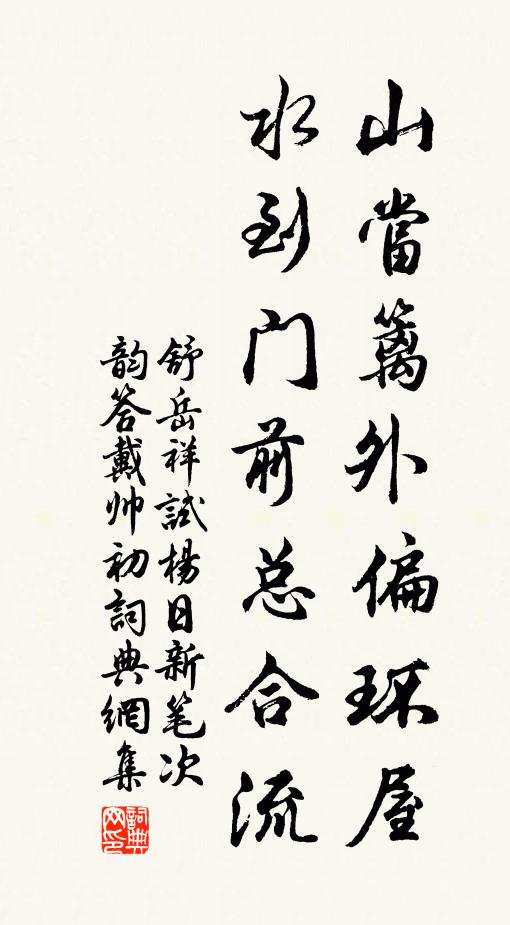 山當籬外偏环屋
水到门前总合流
舒岳祥試楊日新笔次
韵答戴帅初詞典網集
詞典网印